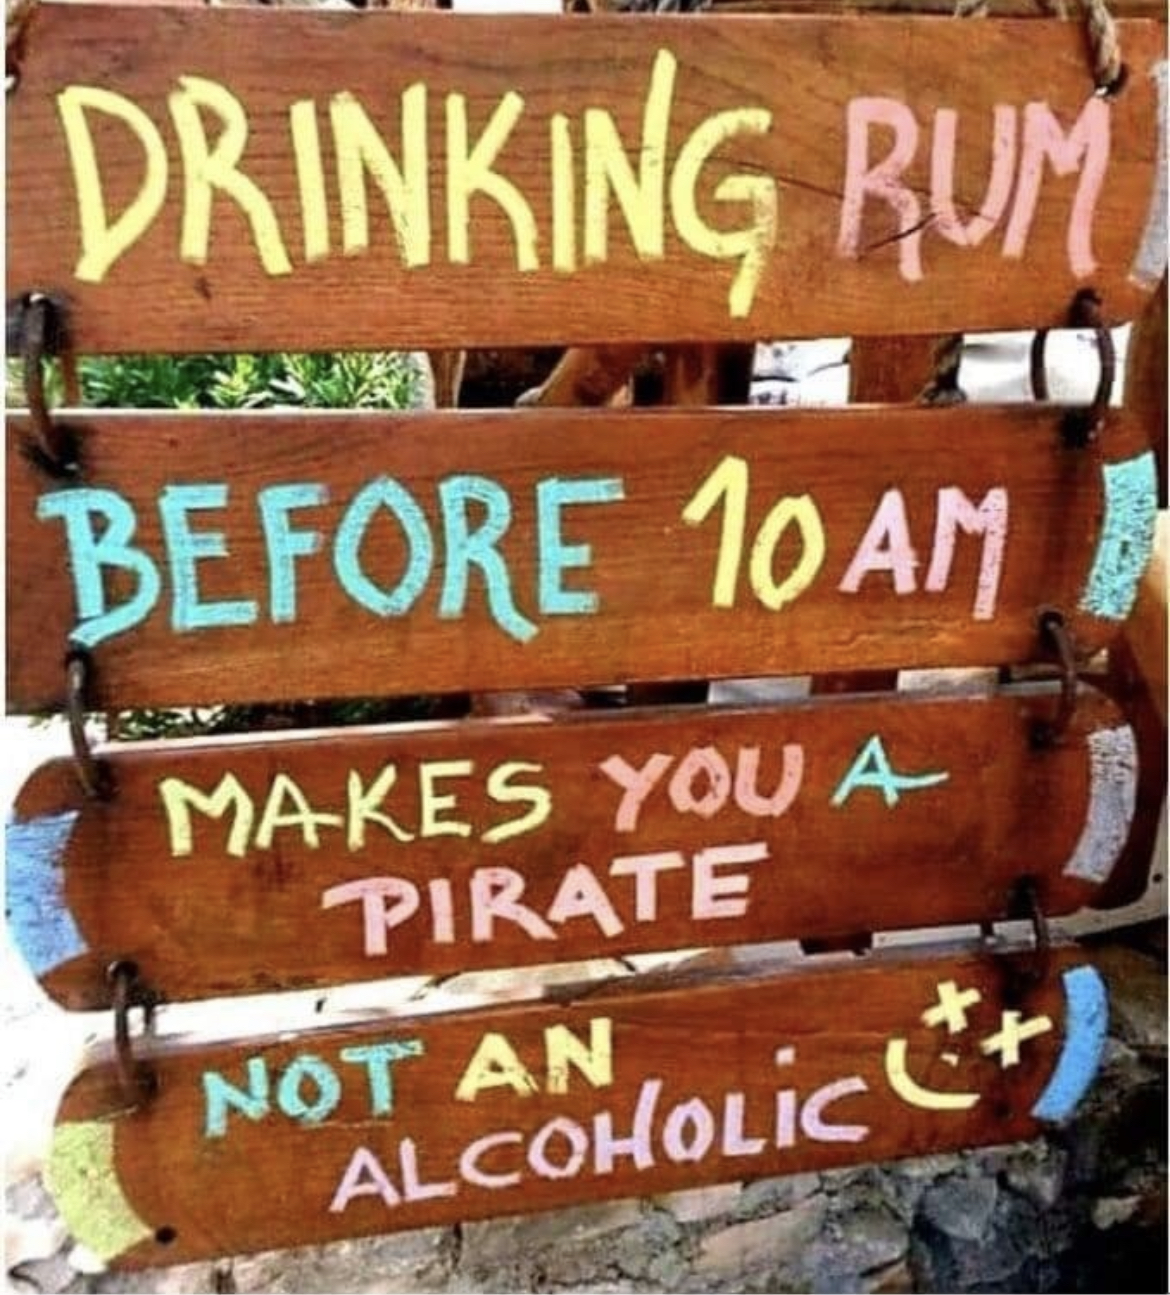 DRINKING RUM
BEFORE 10 AM
MAKES YOU A
PIRATE
NOT AN
ALCOHOLiC